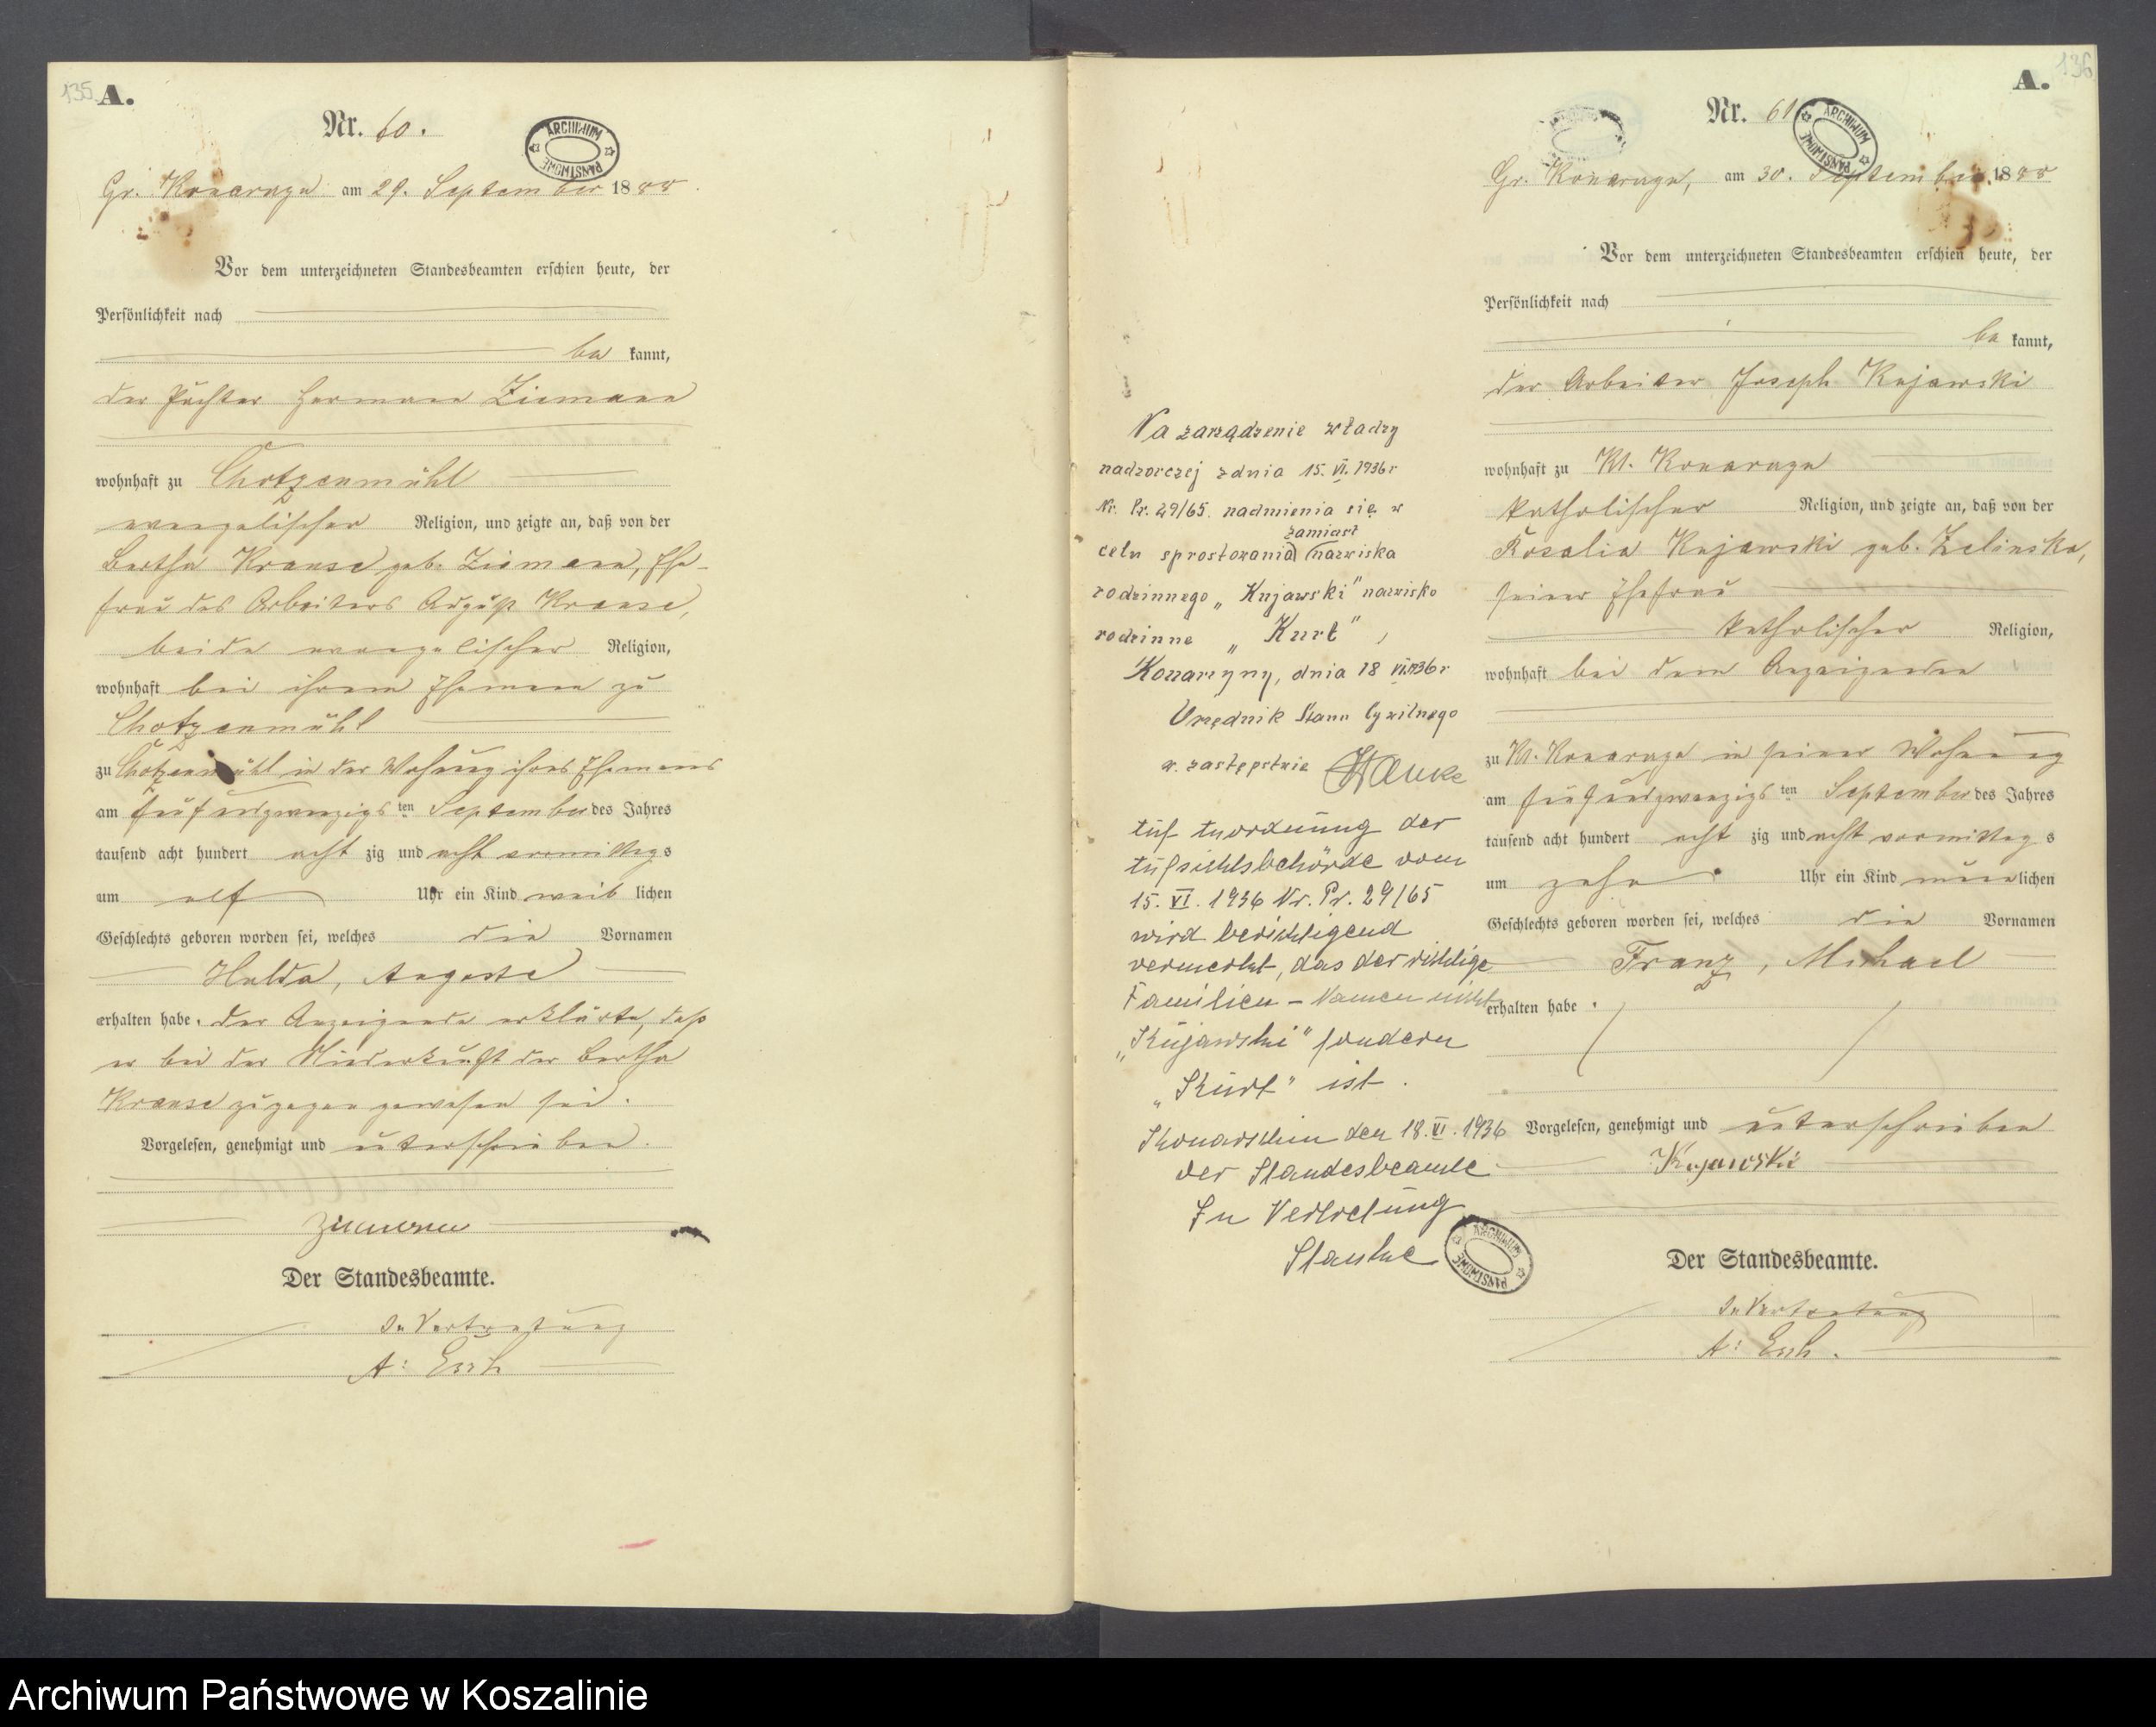 135 A.
Nr. 60.
ARCHIWUM PAŃSTWOWE
Gr. Konarczyn am 29. September 1888.
Vor dem unterzeichneten Standesbeamten erschien heute, der
Persönlichkeit nach
be kannt,
der Pächter Hermann Ziemann
wohnhaft zu Chotzenmühl
evangelischer Religion, und zeigte an, daß von der
Bertha Krause geb. Ziemann, Ehe-
frau des Arbeiters August Krause,
beide evangelischer Religion,
wohnhaft bei ihrem Ehemann zu
Chotzenmühl
zu Chotzenmühl in der Wohnung ihres Ehemanns
am fünfundzwanzigsten September des Jahres
tausend acht hundert acht zig und acht vormittags
um elf Uhr ein Kind weib lichen
Geschlechts geboren worden sei, welches die Vornamen
Hulda, Auguste
erhalten habe. Der Anzeigende erklärte, daß
er bei der Niederkunft der Bertha
Krause zugegen gewesen sei.
Vorgelesen, genehmigt und unterschrieben.
Ziemann
Der Standesbeamte.
In Vertretung
A:
136
A.
Nr. 61
ARCHIWUM PAŃSTWOWE
Gr. Konarczyn, am 30. September 1888
Vor dem unterzeichneten Standesbeamten erschien heute, der
Persönlichkeit nach
be kannt,
der Arbeiter Joseph Kujawski
wohnhaft zu Kl. Konarczyn
katholischer Religion, und zeigte an, daß von der
Rosalia Kujawski geb. Zelinska,
seiner Ehefrau
katholischer Religion,
wohnhaft bei dem Anzeigenden
zu Kl. Konarczyn in seiner Wohnung
am fünfundzwanzigsten September des Jahres
tausend acht hundert acht zig und acht vormittag s
um zehn Uhr ein Kind männlichen
Geschlechts geboren worden sei, welches die Vornamen
Franz, Michael
erhalten habe.
Vorgelesen, genehmigt und unterschrieben
Kujawski
Der Standesbeamte.
In Vertretung
A:
Na zarządzenie władzy
nadzorczej z dnia 15. VI. 1936 r
Nr. Pr. 29/65. nadmienia się w
celu sprostowania zamiast nazwiska
rodzinnego „Kujawski" nazwisko
rodzinne „Kurt",
Konarzyny, dnia 18 VI.1936 r
Urzędnik Stanu Cywilnego
w. zastępstwie
Auf Anordnung der
Aufsichtsbehörde vom
15. VI. 1936 Nr. Pr. 29/65
wird berichtigend
vermerkt, das der richtige
Familien-Namen nicht
„Kujawski" sondern
„Kurt" ist.
Konarschin den 18. VI. 1936
der Standesbeamte
In Vertretung
ARCHIWUM PAŃSTWOWE
Archiwum Państwowe w Koszalinie